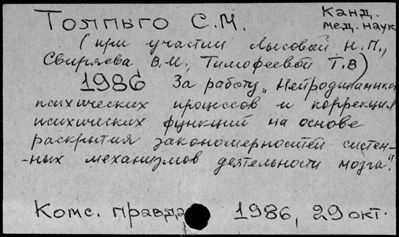 Толпыго С.М. Канд. мед. наук
(при участии Лысовой Н.П.,
Свиряева В.И., Тимофеевой Т.В)
1986 За работу „Нейродинамика
психических процессов и коррекция
психических функций на основе
раскрытия закономерностей систем-
-ных механизмов деятельности мозга".
Комс. правда 1986, 29 окт.